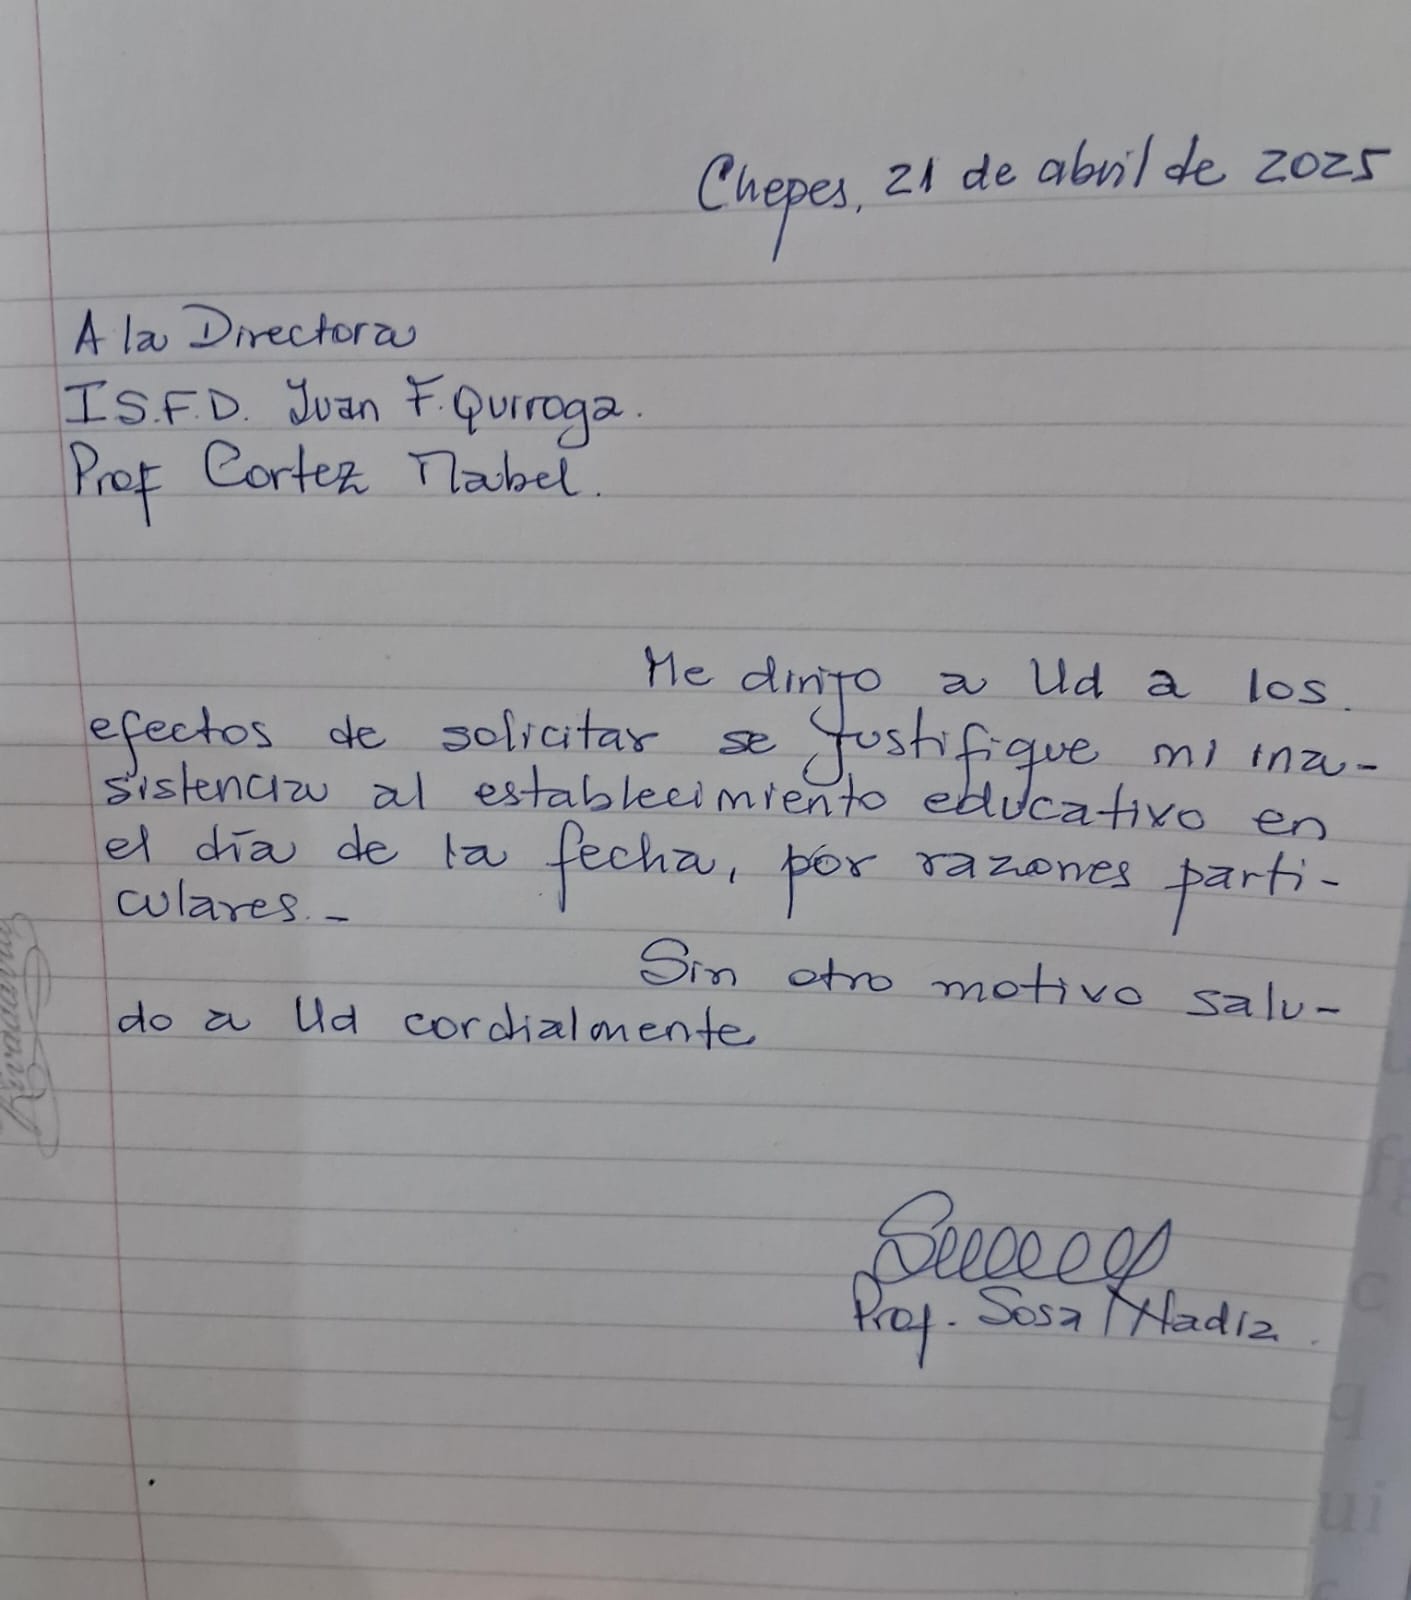 Chepes, 21 de abril de 2025
A la Directora
I.S.F.D. Juan F. Quiroga.
Prof Cortez Mabel.
Me dirijo a Ud a los.
efectos de solicitar se justifique mi ina-
sistencia al establecimiento educativo en
el día de la fecha, por razones parti-
culares.-
Sin otro motivo salu-
do a Ud cordialmente
Prof. Sosa Nadia.
Rivadavia